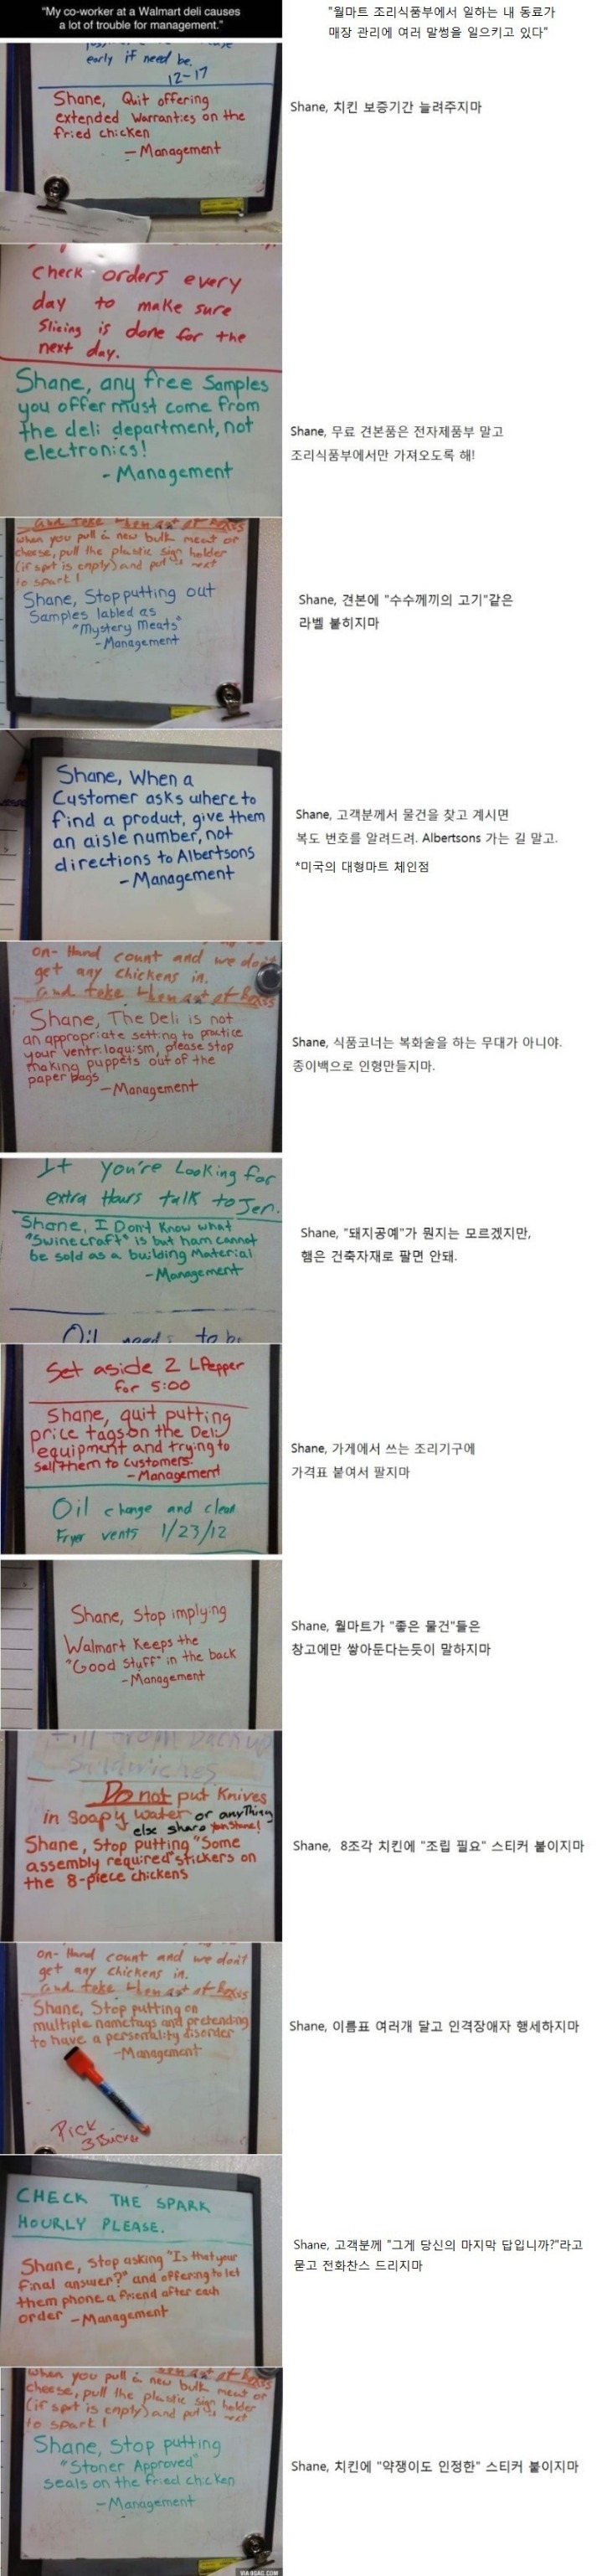 "My co-worker at a Walmart deli causes
a lot of trouble for management."
"월마트 조리식품부에서 일하는 내 동료가
매장 관리에 여러 말썽을 일으키고 있다"
early if need be.
12-17
Shane, Quit offering
extended warranties on the
fried chicken
- Management
Shane, 치킨 보증기간 늘려주지마
Check orders every
day to make sure
Slicing is done for the
next day.
Shane, any free Samples
you offer must come from
the deli department, not
electronics!
- Management
Shane, 무료 견본품은 전자제품부 말고
조리식품부에서만 가져오도록 해!
when you pull a new bulk meat or
cheese, pull the plastic sign holder
(if spot is empty) and put it next
to spark!
Shane, Stop putting out
Samples labled as
"Mystery Meats"
- Management
Shane, 견본에 "수수께끼의 고기"같은
라벨 붙히지마
Shane, When a
Customer asks where to
find a product, give them
an aisle number, not
directions to Albertsons
- Management
Shane, 고객분께서 물건을 찾고 계시면
복도 번호를 알려드려. Albertsons 가는 길 말고.
*미국의 대형마트 체인점
on-Hand count and we don't
get any chickens in.
Shane, The Deli is not
an appropriate setting to practice
your ventriloquism, please stop
making puppets out of the
paper bags
- Management
Shane, 식품코너는 복화술을 하는 무대가 아니야.
종이백으로 인형만들지마.
If you're Looking for
extra Hours talk to Jen.
Shane, I Don't Know what
"Swinecraft" is but ham cannot
be sold as a building Material
- Management
Oil needs to be
Shane, "돼지공예"가 뭔지는 모르겠지만,
햄은 건축자재로 팔면 안돼.
Set aside 2 LPepper
for 5:00
Shane, quit putting
price tags on the Deli
equipment and trying to
sell them to customers.
- Management
Oil change and clean
Fryer vents 1/23/12
Shane, 가게에서 쓰는 조리기구에
가격표 붙여서 팔지마
Shane, Stop implying
Walmart Keeps the
"Good Stuff" in the back
- Management
Shane, 월마트가 "좋은 물건"들은
창고에만 쌓아둔다는듯이 말하지마
Sandwiches
Do not put Knives
in Soapy water or anything
else sharp
Shane, Stop putting "Some
assembly required" stickers on
the 8-piece chickens
Shane,  8조각 치킨에 "조립 필요" 스티커 붙이지마
on-Hand count and we don't
get any chickens in.
Shane, Stop putting on
multiple nametags and pretending
to have a personality disorder
- Management
Pick
Shane, 이름표 여러개 달고 인격장애자 행세하지마
CHECK THE SPARK
HOURLY PLEASE.
Shane, Stop asking "Is that your
final answer?" and offering to let
them phone a friend after each
order - Management
Shane, 고객분께 "그게 당신의 마지막 답입니까?"라고
묻고 전화찬스 드리지마
when you pull a new bulk meat or
cheese, pull the plastic sign holder
(if spot is empty) and put it next
to spark!
Shane, Stop putting
"Stoner Approved"
seals on the fried chicken
- Management
Shane, 치킨에 "약쟁이도 인정한" 스티커 붙이지마
VIA 9GAG.COM